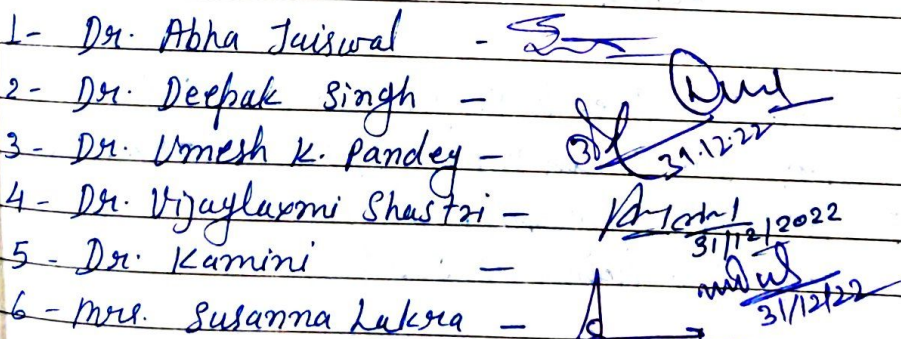 1- Dr. Abha Jaiswal -
2- Dr. Deepak Singh -
3- Dr. Umesh K. Pandey - 31.12.22
4- Dr. Vijaylaxmi Shastri - 31/12/2022
5- Dr. Kamini - 31/12/22
6- Mrs. Susanna Lakra -